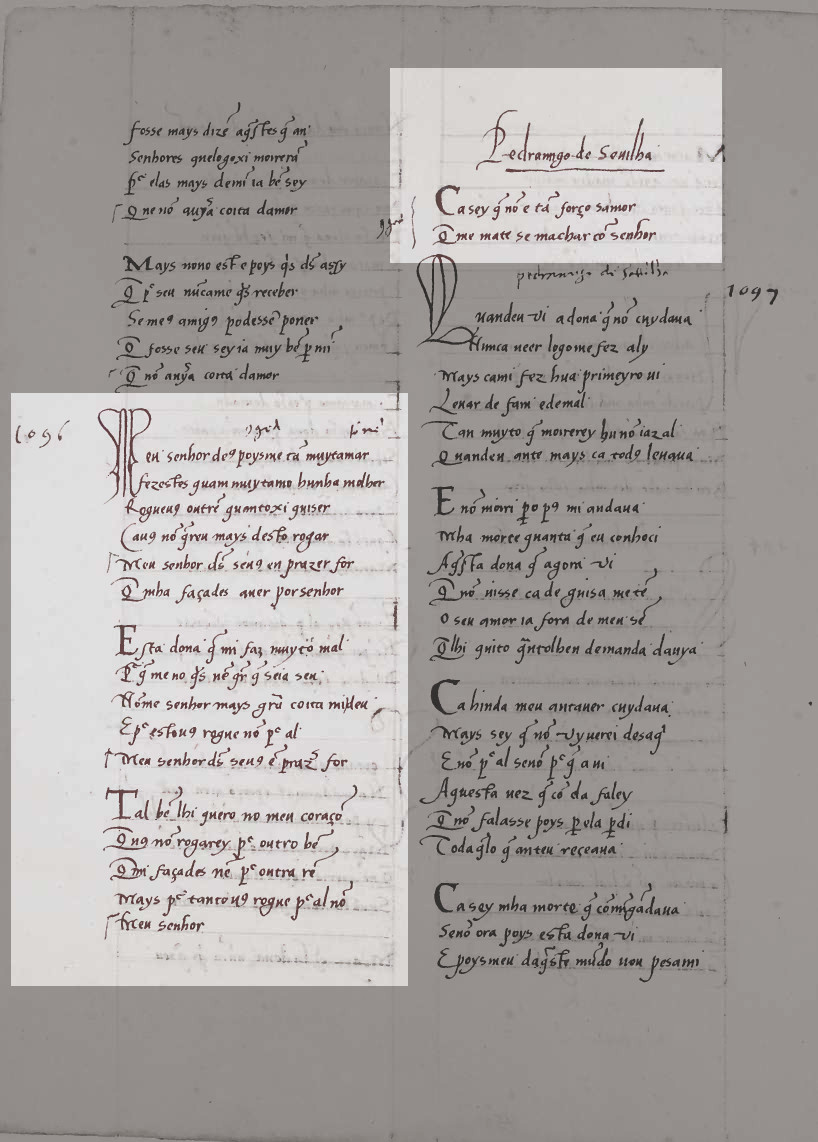 fosse mays dizẽ aq̃stes q̃ an
Senhores que logo xi moirerã
ꝑᵉ elas mays demi ia bẽ sey
Que nõ auya coita damor
Mays nono est e poys q̃s ds̃ assy
Q ꝑ seu nũca me q̃s receber
Se me9 amig9 podesse poner
Q̃ fosse seu sey ia muy bẽ ꝑ mi
Q̃ nõ auya coita damor
1096
Meu senhor de9 poys me tã muyt amar
fezestes quam muyt amo hunha molher
Rogueu9 outrẽ quanto xi quiser
Ca u9 nõ q̃reu mays desto rogar
Meu senhor ds̃ se u9 en prazer for
Q̃ mha façades auer por senhor
Esta dona q̃ mi faz muytõ mal
ꝑᵉ q̃ me no q̃s nõ q̃r q̃ seia seu
Nõme senhor mays grã coita mi deu
E ꝑᵉ est o u9 rogue nõ ꝑᵉ al
Meu senhor ds̃ se u9 ẽ prazẽ for
Tal bẽ lhi quero no meu coraçõ
Q̃ u9 nõ rogarey ꝑᵉ outro bẽ
Q̃ mi façades nẽ ꝑᵉ outra rẽ
Mays ꝑᵉ tanto u9 rogue ꝑᵉ al nõ
Meu senhor
Pedramigo de Seuilha
Ca sey q̃ nõ e tã forço samor
Q̃ me mate se machar cõ senhor
pedramigo de seuilha
1097
Quandeu vi a dona q̃ nõ cuydaua
Nunca ueer logo me fez aly
Mays ca mi fez hua primeyro ui
Leuar de fam e de mal
Tan muyto q̃ moirerey hu nõ iaz al
Quandeu ante mays ca tod9 leuaua
E nõ moiri ꝑo p9 mi andaua
Mha morte quanta q̃ eu conhoci
Aq̃sta dona q̃ agora vi
Q̃ nõ uisse ca de guisa me tẽ
O seu amor ia fora de meu sẽ
Q̃lhi quito q̃ntolhen demanda dauya
Ca hinda meu ant auer cuydaua
Mays sey q̃ nõ vyuerei desaq̃
E nõ ꝑᵉ al senõ ꝑᵉ q̃ a ui
Aquesta uez q̃ cõ da faley
Q̃ nõ falasse poys ꝑ ela ꝑdi
Todaq̃lo q̃ anteu reçeaua
Ca sey mha morte q̃ cõmigãdaua
Senõ ora poys esta dona vi
E poys meu daq̃ste mũdo uou pesami